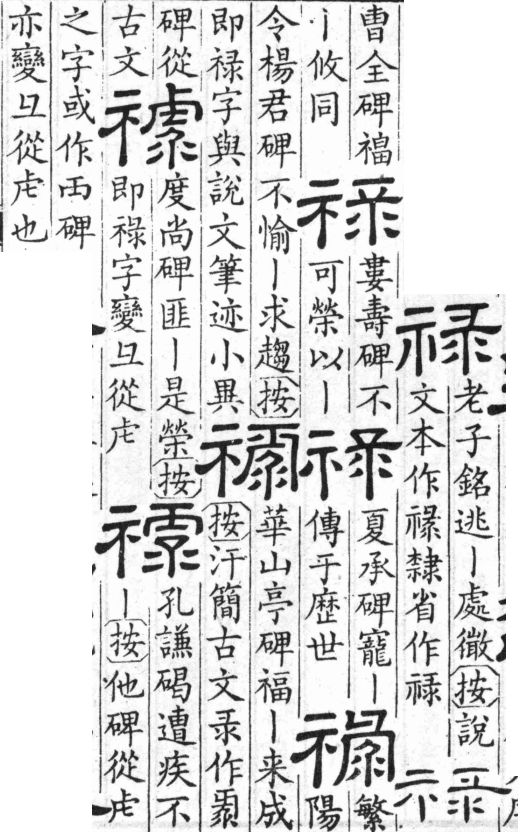 禄
老子銘逃丨處徽按說
文本作祿隸省作禄
禄
曹全碑福
丨攸同
禄
婁壽碑不
可榮以丨
禄
夏承碑寵丨
傳于歷世
祿
繁
陽
令楊君碑不愉丨求趨按
即禄字與說文筆迹小異
華山亭碑福丨来成
按汗簡古文录作
碑從
古文
度尚碑匪丨是榮按
即禄字變彑從虍
孔謙碣遭疾不
丨按他碑從虍
之字或作襾碑
亦變彑從虍也